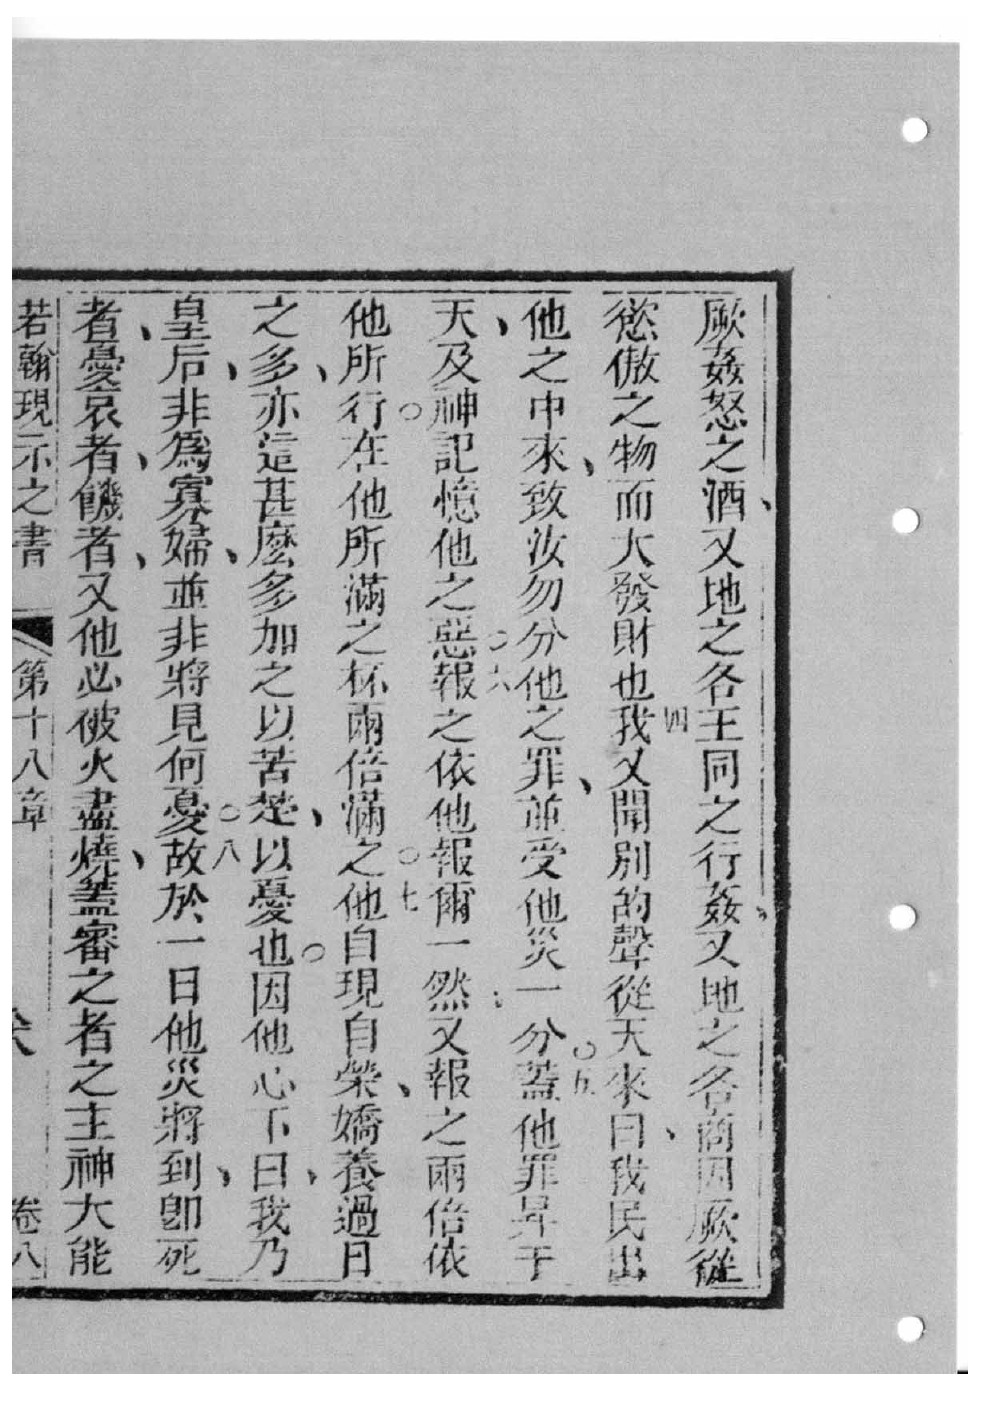 厥姦怒之酒、又地之各王同之行姦、又地之各商因厥從
慾傲之物而大發財也四我又聞別的聲從天來曰、我民出
他之中來、致汝勿分他之罪、並受他災一分○五蓋他罪昇于
天、及神記憶他之惡○六報之依他報爾一然、又報之兩倍依
他所行○在他所滿之杯兩倍滿之○七他自現自榮、嬌養過日
之多、亦這甚麼多加之以苦楚、以憂也○因他心下曰、我乃
皇后、非爲寡婦、並非將見何憂○八故於一日他災將到、卽死
者、憂哀者、饑者、又他必彼火盡燒、蓋審之者之主神大能
若翰現示之書 第十八章 六 卷八